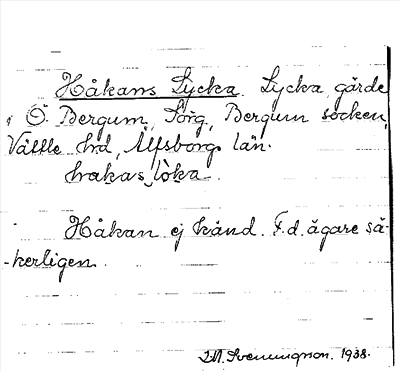 Håkans Lycka. Lycka, gärde
i Ö. Bergum, Sörg, Bergum socken,
Vättle hd, Älfsborgs län.
hakas löka.
Håkan ej känd. F.d. ägare sä-
-kerligen.
Svenningson. 1938.